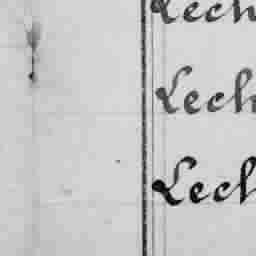 Lech
Lech
Lech